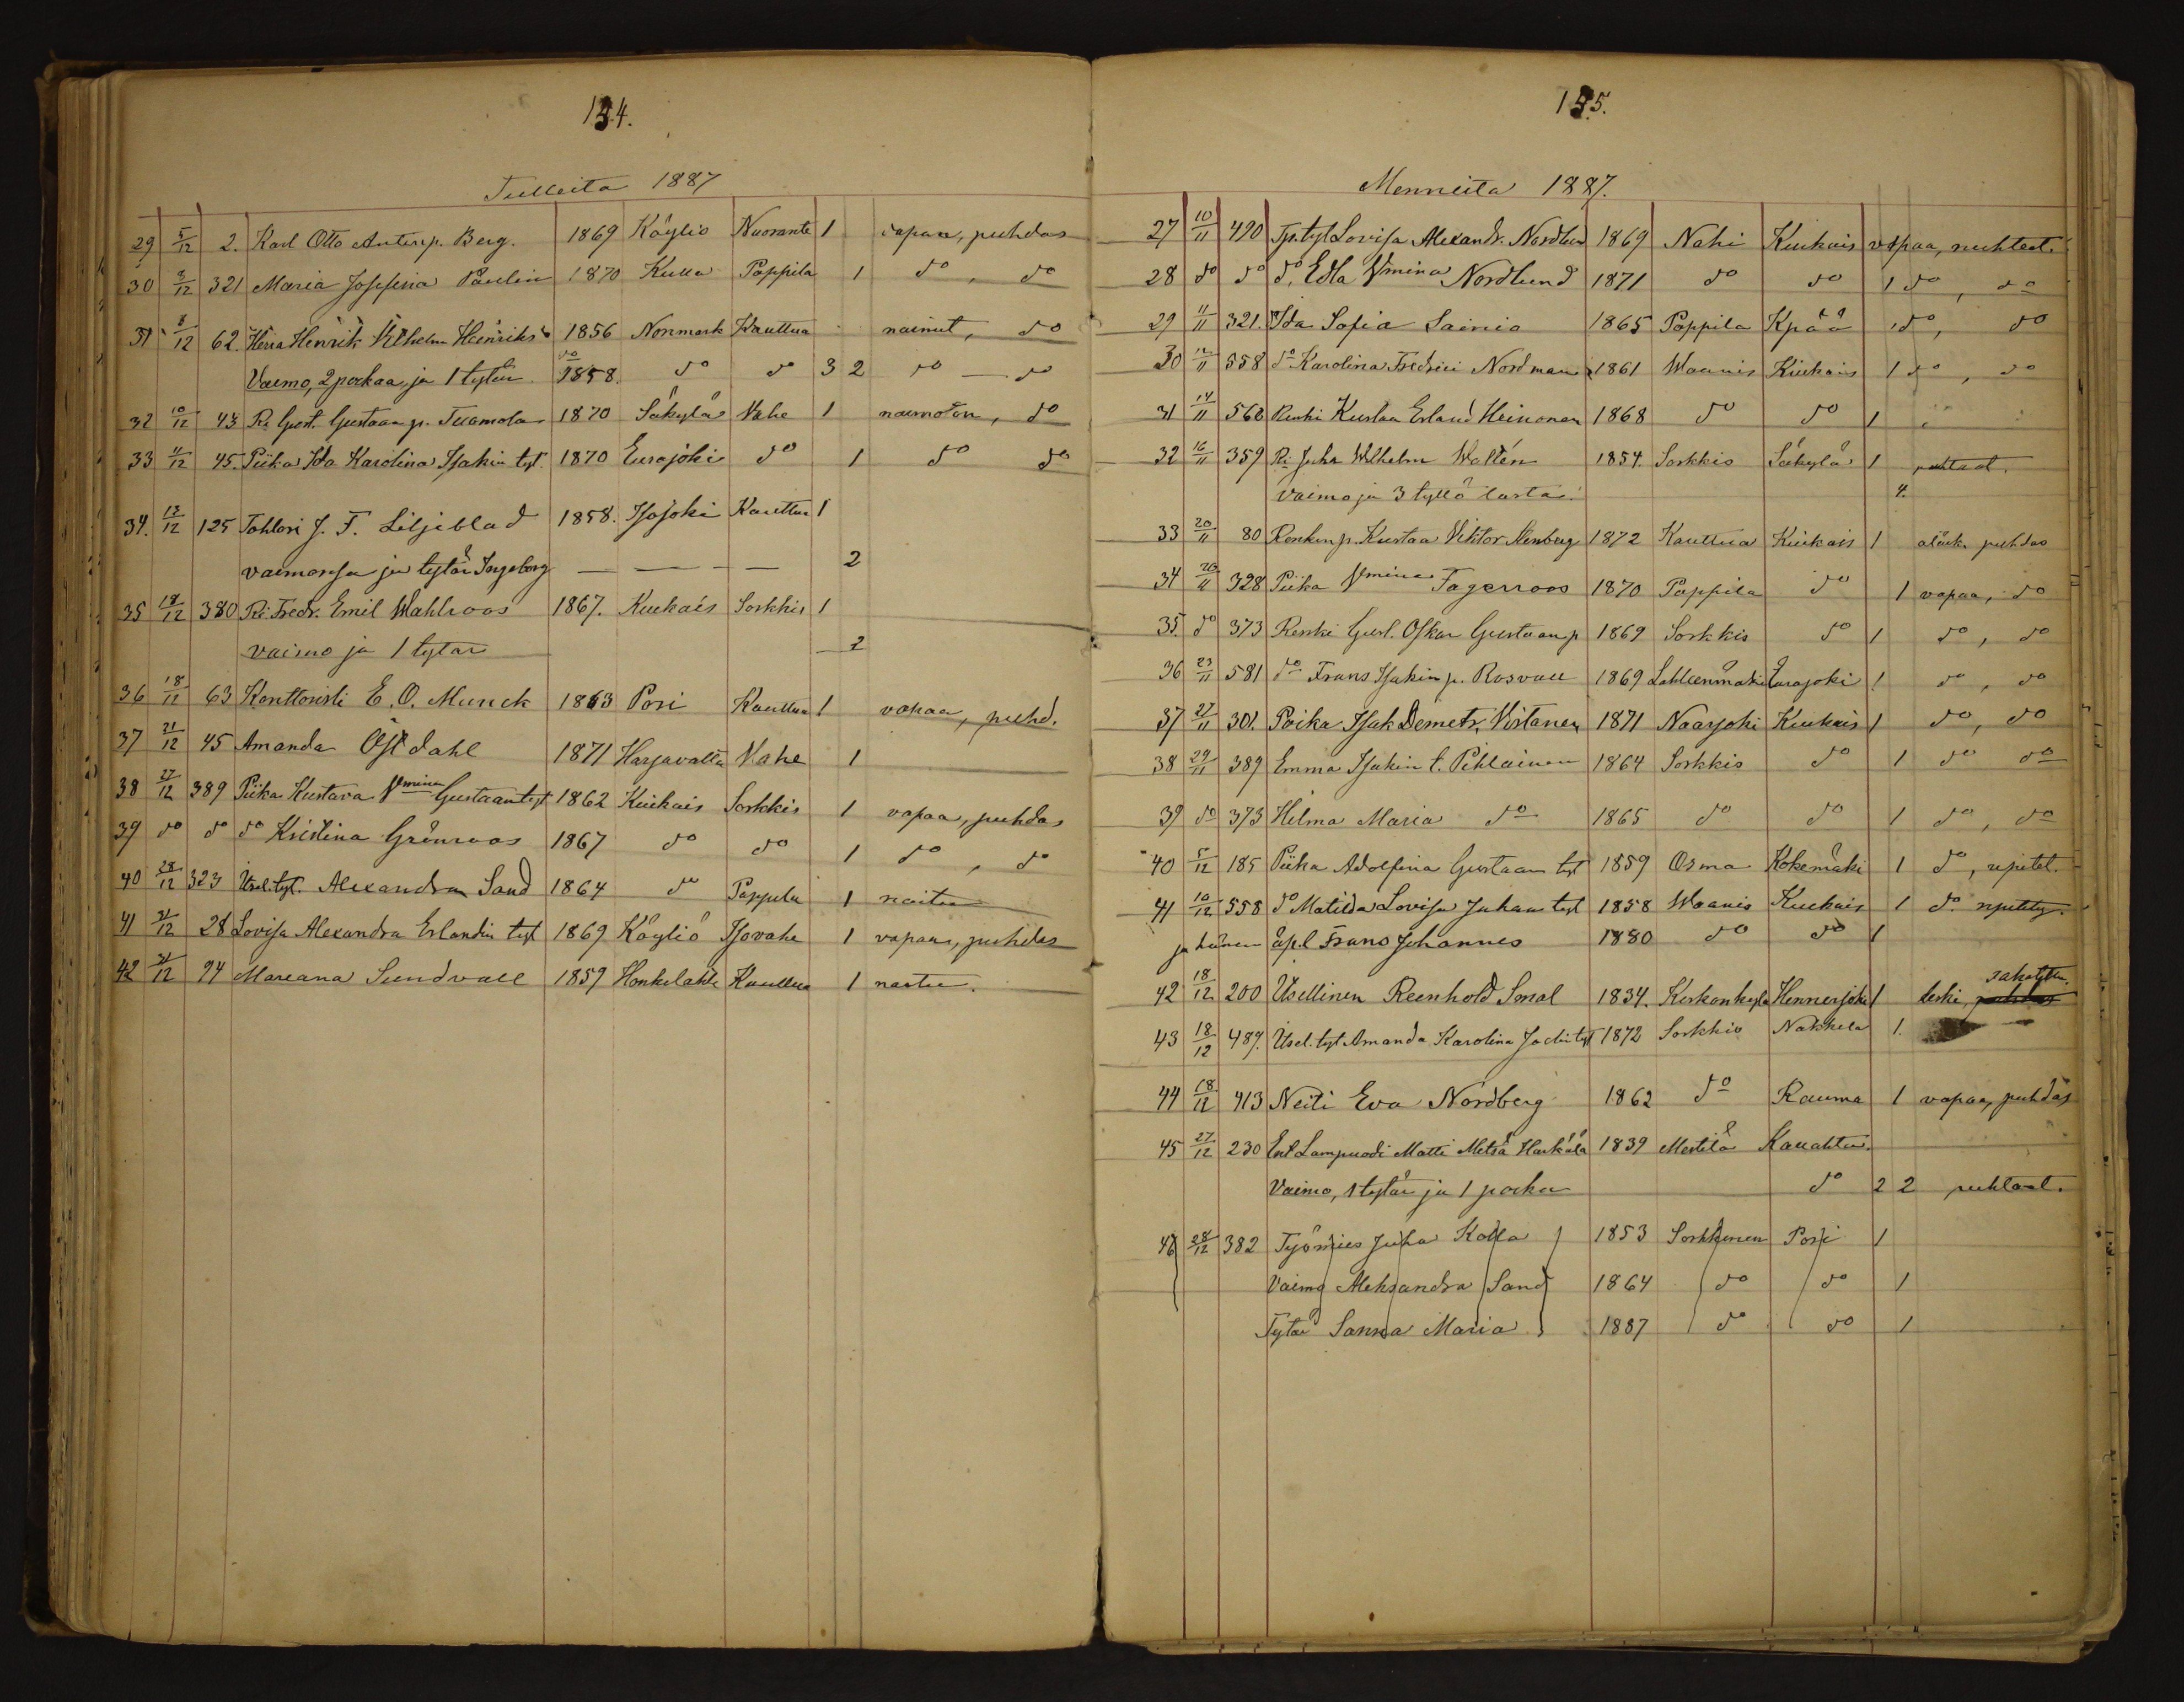 134.
Tulleita 1887
29 5/12 2. Karl Otto Anterinp. Berg. 1869 Köyliö Nuoranta 1 vapaa, puhdas
30 9/12 321 Maria Josefina Paulin 1870 Kulla Pappila 1 do, do
31 8/12 62. Herra Henrik Vilhelm Henriks 1856 Norrmark Kauttua nainut, do
Vaimo, 2 poikaa, ja 1 tytär 1858. do do 3 2 do — do
32 10/12 43 Ri Gust. Gustaan p. Tuomola 1870 Säkylä Vahe 1 naimaton, do
33 11/12 45. Piika Ida Karolina Isakin tyt. 1870 Eurajoki do 1 do do
34. 13/12 125 Tohtori J. F. Liljeblad 1858. Isojoki Kauttua 1
vaimonsa ja tytär Ingeborg — — — — 2
35 18/12 380 Ri. Fredr. Emil Wahlroos 1867. Kiukais Sorkkis 1
vaimo ja 1 tytar 2
36 18/12 63 Konttoristi E. O. Munck 1863 Pori Kauttua 1 vapaa, puhd.
37 21/12 45 Amanda Öfdahl 1871 Harjavalta Vahe 1
38 27/12 389 Piika Kustava Vmina Gustaantyt 1862 Kiukais Sorkkis 1 vapaa, puhdas
39 do do do Kristina Grönroos 1867 do do 1 do, do
40 28/12 323 Itsel. tyt. Alexandra Sand 1864 do Pappila 1 naitu
41 31/12 28 Lovisa Alexandra Erlandin tyt 1869 Köyliö Isovahe 1 vapaa, puhdas
42 31/12 94 Mareana Sundvall 1859 Honkilahti Kauttua 1 naitu.
135.
Menneitä 1887.
27 10/11 490 Tps. tyt Lovisa Alexandr. Nordlund 1869 Nahi Kiukais vapaa, nuhteet.
28 do do do, Edla Vmina Nordlund 1871 do do 1 do, do
29 11/11 321. Ida Sofia Sainio 1865 Pappila Kpää 1 do, do
30 12/11 558 do Karolina Fredrici Nordman 1861 Waanis Kiukais 1 do, do
31 14/11 560 Renki Kustaa Erland Heinonen 1868 do do 1
32 16/11 359 Ri Juha Wilhelm Wallén 1854. Sorkkis Säkylä 1 puhtaat.
vaimo ja 3 tyttö lasta. 4.
33 20/11 80 Renkinp. Kustaa Viktor Stenberg 1872 Kauttua Kiukais 1 puhdas
34 20/11 328 Piika Vmina Fagerroos 1870 Pappila do 1 vapaa, do
35. do 373 Renki Gust. Oskar Gustaan p 1869 Sorkkis do 1 do, do
36 23/11 581 do Frans Isakin p. Rosvall 1869 Lähteenmäki Eurajoki 1 do, do
37 27/11 301. Poika Isak Demetr. Virtanen 1871 Naarjoki Kiukais 1 do, do
38 29/11 389 Emma Isakin t. Pihlainen 1864 Sorkkis do 1 do do
39 do 373 Hilma Maria do 1865 do do 1 do, do
40 5/12 185 Piika Adolfina Gustaan tyt 1859 Osma Kokemäki 1 do, ripitet.
41 10/12 558 do Matilda Lovisa Juhan tyt 1858 Waanis Kiukais 1 do ripitety.
ja hänen äpl Frans Johannes 1880 do do 1
42 18/12 200 Itsellinen Reinhold Smal 1834. Kirkonkylä Hinnerjoki 1 leski, sakotettu.
43 18/12 489. Itsel. tyt Amanda Karolina Joelintyt 1872 Sorkkis Nakkila 1.
44 18/12 413 Neiti Eva Nordberg 1862 do Rauma 1 vapaa, puhdas
45 27/12 230 Ent Lampuodi Matti Metsä Harkälä 1839 Mestilä Kauvatsa.
Vaimo, 1 tytär ja 1 poika do 2 2 puhtaat.
46 28/12 382 Työmies Juha Kolla 1853 Sorkkinen Pori 1
Vaimo Aleksandra Sand 1864 do do 1
Tytär Sanna Maria 1887 do do 1